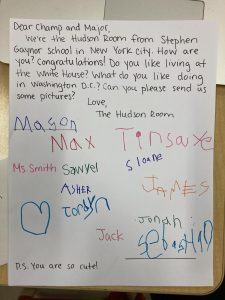 Dear Champ and Major,
We're the Hudson Room from Stephen
Gaynor school in New York city. How are
you? Congratulations! Do you like living at
the White House? What do you like doing
in Washington D.C.? Can you please send us
some pictures?
Love,
The Hudson Room
Mason
Max
Tinsaye
Ms. Smith
Sawyer
Sloane
ASHER
JAMES
Jonah
Jack
SebastIAN
P.S. You are so cute!